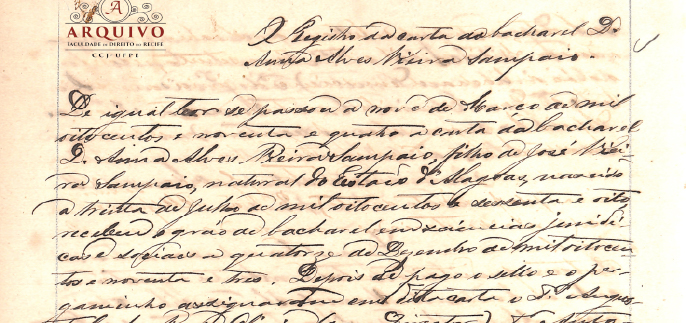 A
ARQUIVO
FACULDADE DE DIREITO DO RECIFE
CCJ-UFPE
Registro da carta do bacharel D.
Anna Alves Vieira Sampaio.
De igual teor se passou a nove de Março de mil
oitocentos e noventa e quatro a carta da bacharel
D. Anna Alves Vieira Sampaio, filha de José Viei-
ra Sampaio, natural do Estado d'Alagoas, nascido
a trinta de Julho de mil oitocentos e sessenta e oito
recebeu o grão de bacharel em sciencias juridi-
cas e sociaes a quatorze de Dezembro de mil oitocen-
tos e noventa e tres. Depois de pago o sello e o per-
gaminho assignaram esta carta o Dr. Augus-